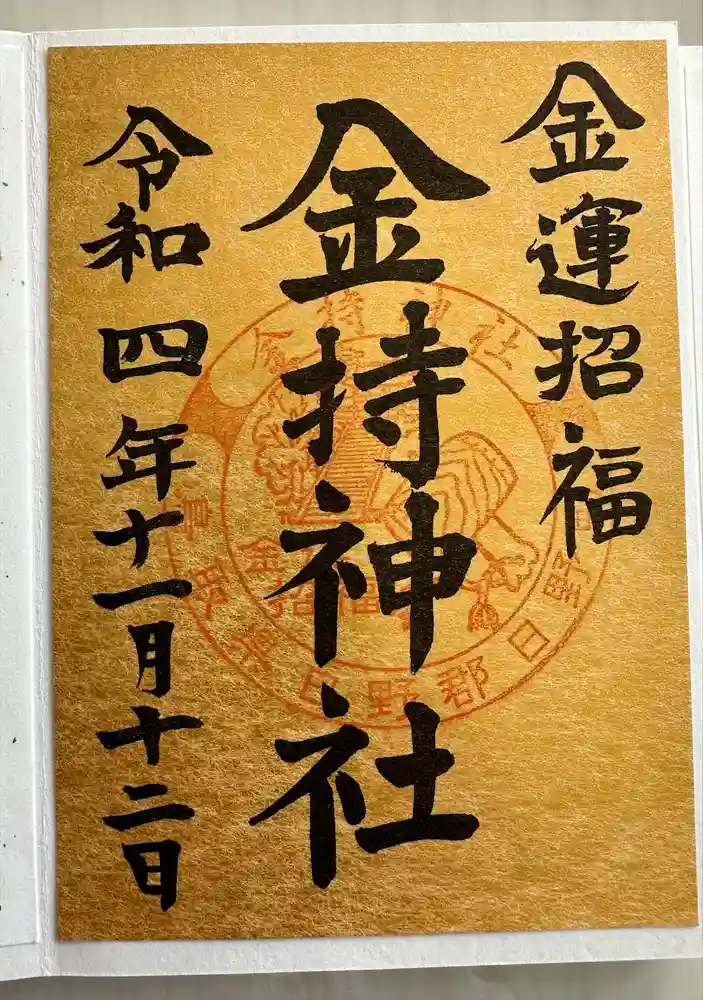 金運招福
金持神社
令和四年十一月十二日
金持神社